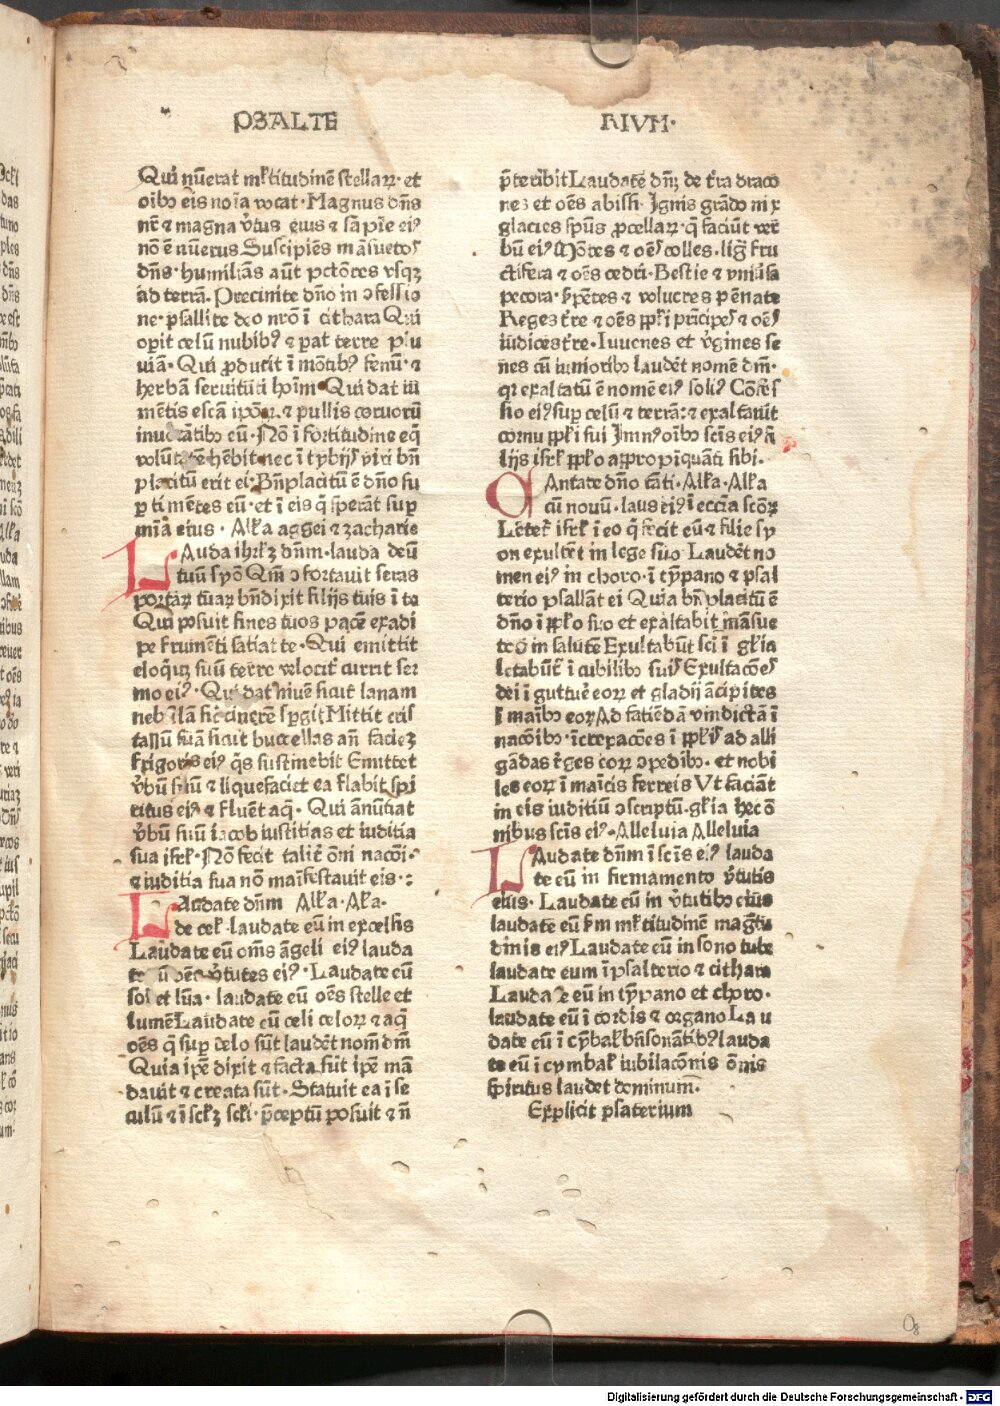 PSALTE
RIVM·
Qui nūerat ml̄titudinē stellaꝝ· et
oībꝫ eis noīa vocat· Magnus dn̄s
nr̄ ⁊ magna v̄tus eius ⁊ sapīe eiꝰ
nō ē nūerus Suscipiēs māsuetos
dn̄s· humiliās aūt pctōres vsqꝫ
ad terrā. Precinite dn̄o in ↄfessio
ne· psallite deo nr̄o ī cithara Qui
opīt celū nubibꝰ ⁊ ꝑat terre plu
uiā· Qui ꝓducit ī mōtibꝰ fenū· ⁊
herbā seruituti hoīm· Qui dat iu
mētis escā ip̄oꝝ· ⁊ pullis coruorū
inuocātibꝫ eū· Nō ī fortitudine eq̄
volūtatē hēbit nec ī tybijs viri bn̄
placitū erit ei· Bn̄placitū ē dn̄o su
ꝑ timētes eū· et ī eis q̄ sperāt suꝑ
mīa eius · All'a aggei ⁊ zacharie
Lauda ihrl'ꝫ dn̄m· lauda deū
tuū syō Qm̄ ↄfortauit seras
portaꝝ tuaꝝ bn̄dixit filijs tuis ī te
Qui posuit fines tuos pacē ⁊ adi
pe frumēti satiat te· Qui emittit
eloqꝫ suū terre velocit̄ currit ser
mo eiꝰ· Qui dat niuē sicut lanam
nebulā sic̄ cinerē sp̄git Mittit cris
tallū suā sicut buccellas an̄ faciez
frigoris eiꝰ q̄s sustinebit Emittet
v̄bū suū ⁊ liquefaciet ea flabit spi
ritus eiꝰ ⁊ fluēt aq̄· Qui ānūtiat
v̄bū suū iacob iustitias et iuditia
sua isrl'· Nō fecit talit̄ oīni nacōi·
⁊ iuditia sua nō maīfestauit eis·:
Laudate dn̄m All'a· Al'a·
de cel'· laudate eū in excelsis
Laudate eū om̄s āgeli eiꝰ lauda
te eū oēs v̄tutes eiꝰ· Laudate eū
sol et lūa· laudate eū oēs stelle et
lumē Laudate eū celi celoꝝ ⁊ aq̄
oēs q̄ suꝑ celo sūt laudēt nom̄ dn̄i
Quia ip̄e dixit ⁊ facta sūt ip̄e mā
dauit ⁊ creata sūt· Statuit ea ī se
culū ⁊ ī scl'ꝫ scl'i· p̄ceptū posuit ⁊ n̄
p̄teribit Laudatē dn̄ꝫ de t̄ra draco
nes et oēs abissi· Ignis grādo nix
glacies sp̄us ꝓcellaꝝ· q̄ faciūt ver
bū eiꝰ Mōtes ⁊ oēs colles· liḡ fru
ctifera ⁊ oēs cedri· Bestie ⁊ vniūsa
pecora· s̄pētes ⁊ volucres pēnate
Reges t̄re ⁊ oēs ppl'i prīcipes ⁊ oēs
iudices t̄re· Iuuenes et v̄gines se
nes cū iunioribꝫ laudēt nomē dn̄i·
qꝛ exaltatū ē nomē eiꝰ soliꝰ Cōfes
sio eiꝰ suꝑ celū ⁊ terrā: ⁊ exaltauit
cornu ppl'i sui Imnꝰ oībꝫ scīs eiꝰ fi
lijs isrl' ppl'o appropīquāti sibi·
Cantate dn̄o cāti· Al'a· Al'a
cū nouū· laus eiꝰ ī eccīa scōꝝ
Letet̄ isrl' ī eo q̄ fecit eū ⁊ filie sy
on exultēt in lege suo· Laudēt no
men eiꝰ in choro· ī tȳpano ⁊ psal
terio psallāt ei Quia bn̄ placitū ē
dn̄o ī ppl'o suo et exaltabit māsue
tos in salutē Exultabūt sci ī gl'ia
letabūt̄ ī cubilibꝫ suis Exultacōes
dei ī gutture eoꝝ et gladij ācipites
ī maībꝫ eoꝝ Ad faciēdā vindictā ī
nacōibꝫ· īcrepacōes ī ppl'is ad alli
gādas rēges eoꝝ ↄpedibꝫ· et nobi
les eoꝝ ī maīcis ferreis Vt faciāt
in eis iuditiū ↄscriptū· gl'ia hec ō
nibus scīs eiꝰ· Alleluia Alleluia
Laudate dn̄m ī scīs eiꝰ lauda
te eū in firmamento v̄tutis
eius· Laudate eū in v̄tutibꝫ eius
laudate eū s̄m ml̄titudinē magt̄u
dinis eiꝰ Laudate eū in sono tube
laudate eum ī psalterio ⁊ cithara
Laudate eū in tȳpano et choro·
laudate eū ī cordis ⁊ organo Lau
date eū ī cȳbal' bn̄sonātibꝰ lauda
te eū ī cymbal' iubilacōnis ōnis
spiritus laudet dominum̄·
Explicit psaterium
08
Digitalisierung gefördert durch die Deutsche Forschungsgemeinschaft - DFG